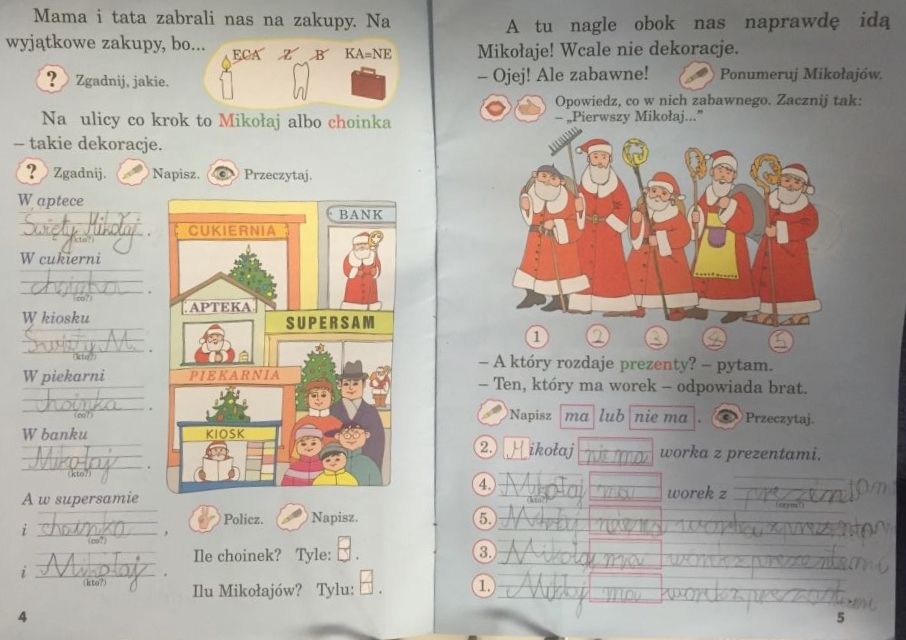 Mama i tata zabrali nas na zakupy. Na
wyjątkowe zakupy, bo...
ECA Z B KA=NE
? Zgadnij, jakie.
Na ulicy co krok to Mikołaj albo choinka
– takie dekoracje.
? Zgadnij. Napisz. Przeczytaj.
W aptece
Święty Mikołaj .
(kto?)
W cukierni
choinka .
(co?)
W kiosku
Święty M. .
(kto?)
W piekarni
choinka .
(co?)
W banku
Mikołaj .
(kto?)
A w supersamie
i choinka ,
(co?)
i Mikołaj .
(kto?)
CUKIERNIA
BANK
APTEKA
SUPERSAM
PIEKARNIA
KIOSK
Policz. Napisz.
Ile choinek? Tyle: .
Ilu Mikołajów? Tylu: .
4
A tu nagle obok nas naprawdę idą
Mikołaje! Wcale nie dekoracje.
– Ojej! Ale zabawne! Ponumeruj Mikołajów.
Opowiedz, co w nich zabawnego. Zacznij tak:
– „Pierwszy Mikołaj..."
1 2 3 4 5
– A który rozdaje prezenty? – pytam.
– Ten, który ma worek – odpowiada brat.
Napisz ma lub nie ma . Przeczytaj.
2. Mikołaj nie ma worka z prezentami.
4. Mikołaj ma worek z
(kto?) (czym?)
5. Mikołaj
3. Mikołaj ma
1. ma
5